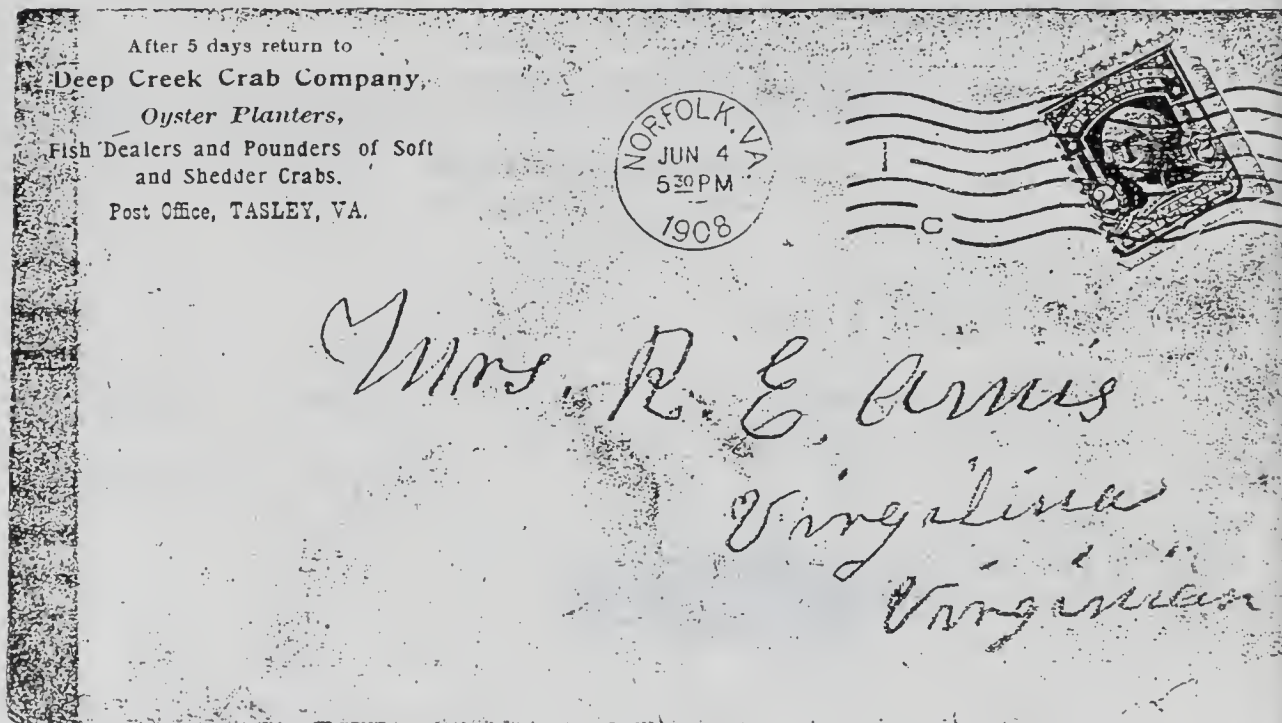 After 5 days return to
Deep Creek Crab Company,
Oyster Planters,
Fish Dealers and Pounders of Soft
and Shedder Crabs.
Post Office, TASLEY, VA.
NORFOLK, VA.
JUN 4
5 30 PM
1908
1
C
2
Mrs. R. E. Amis
Virgilina
Virginian